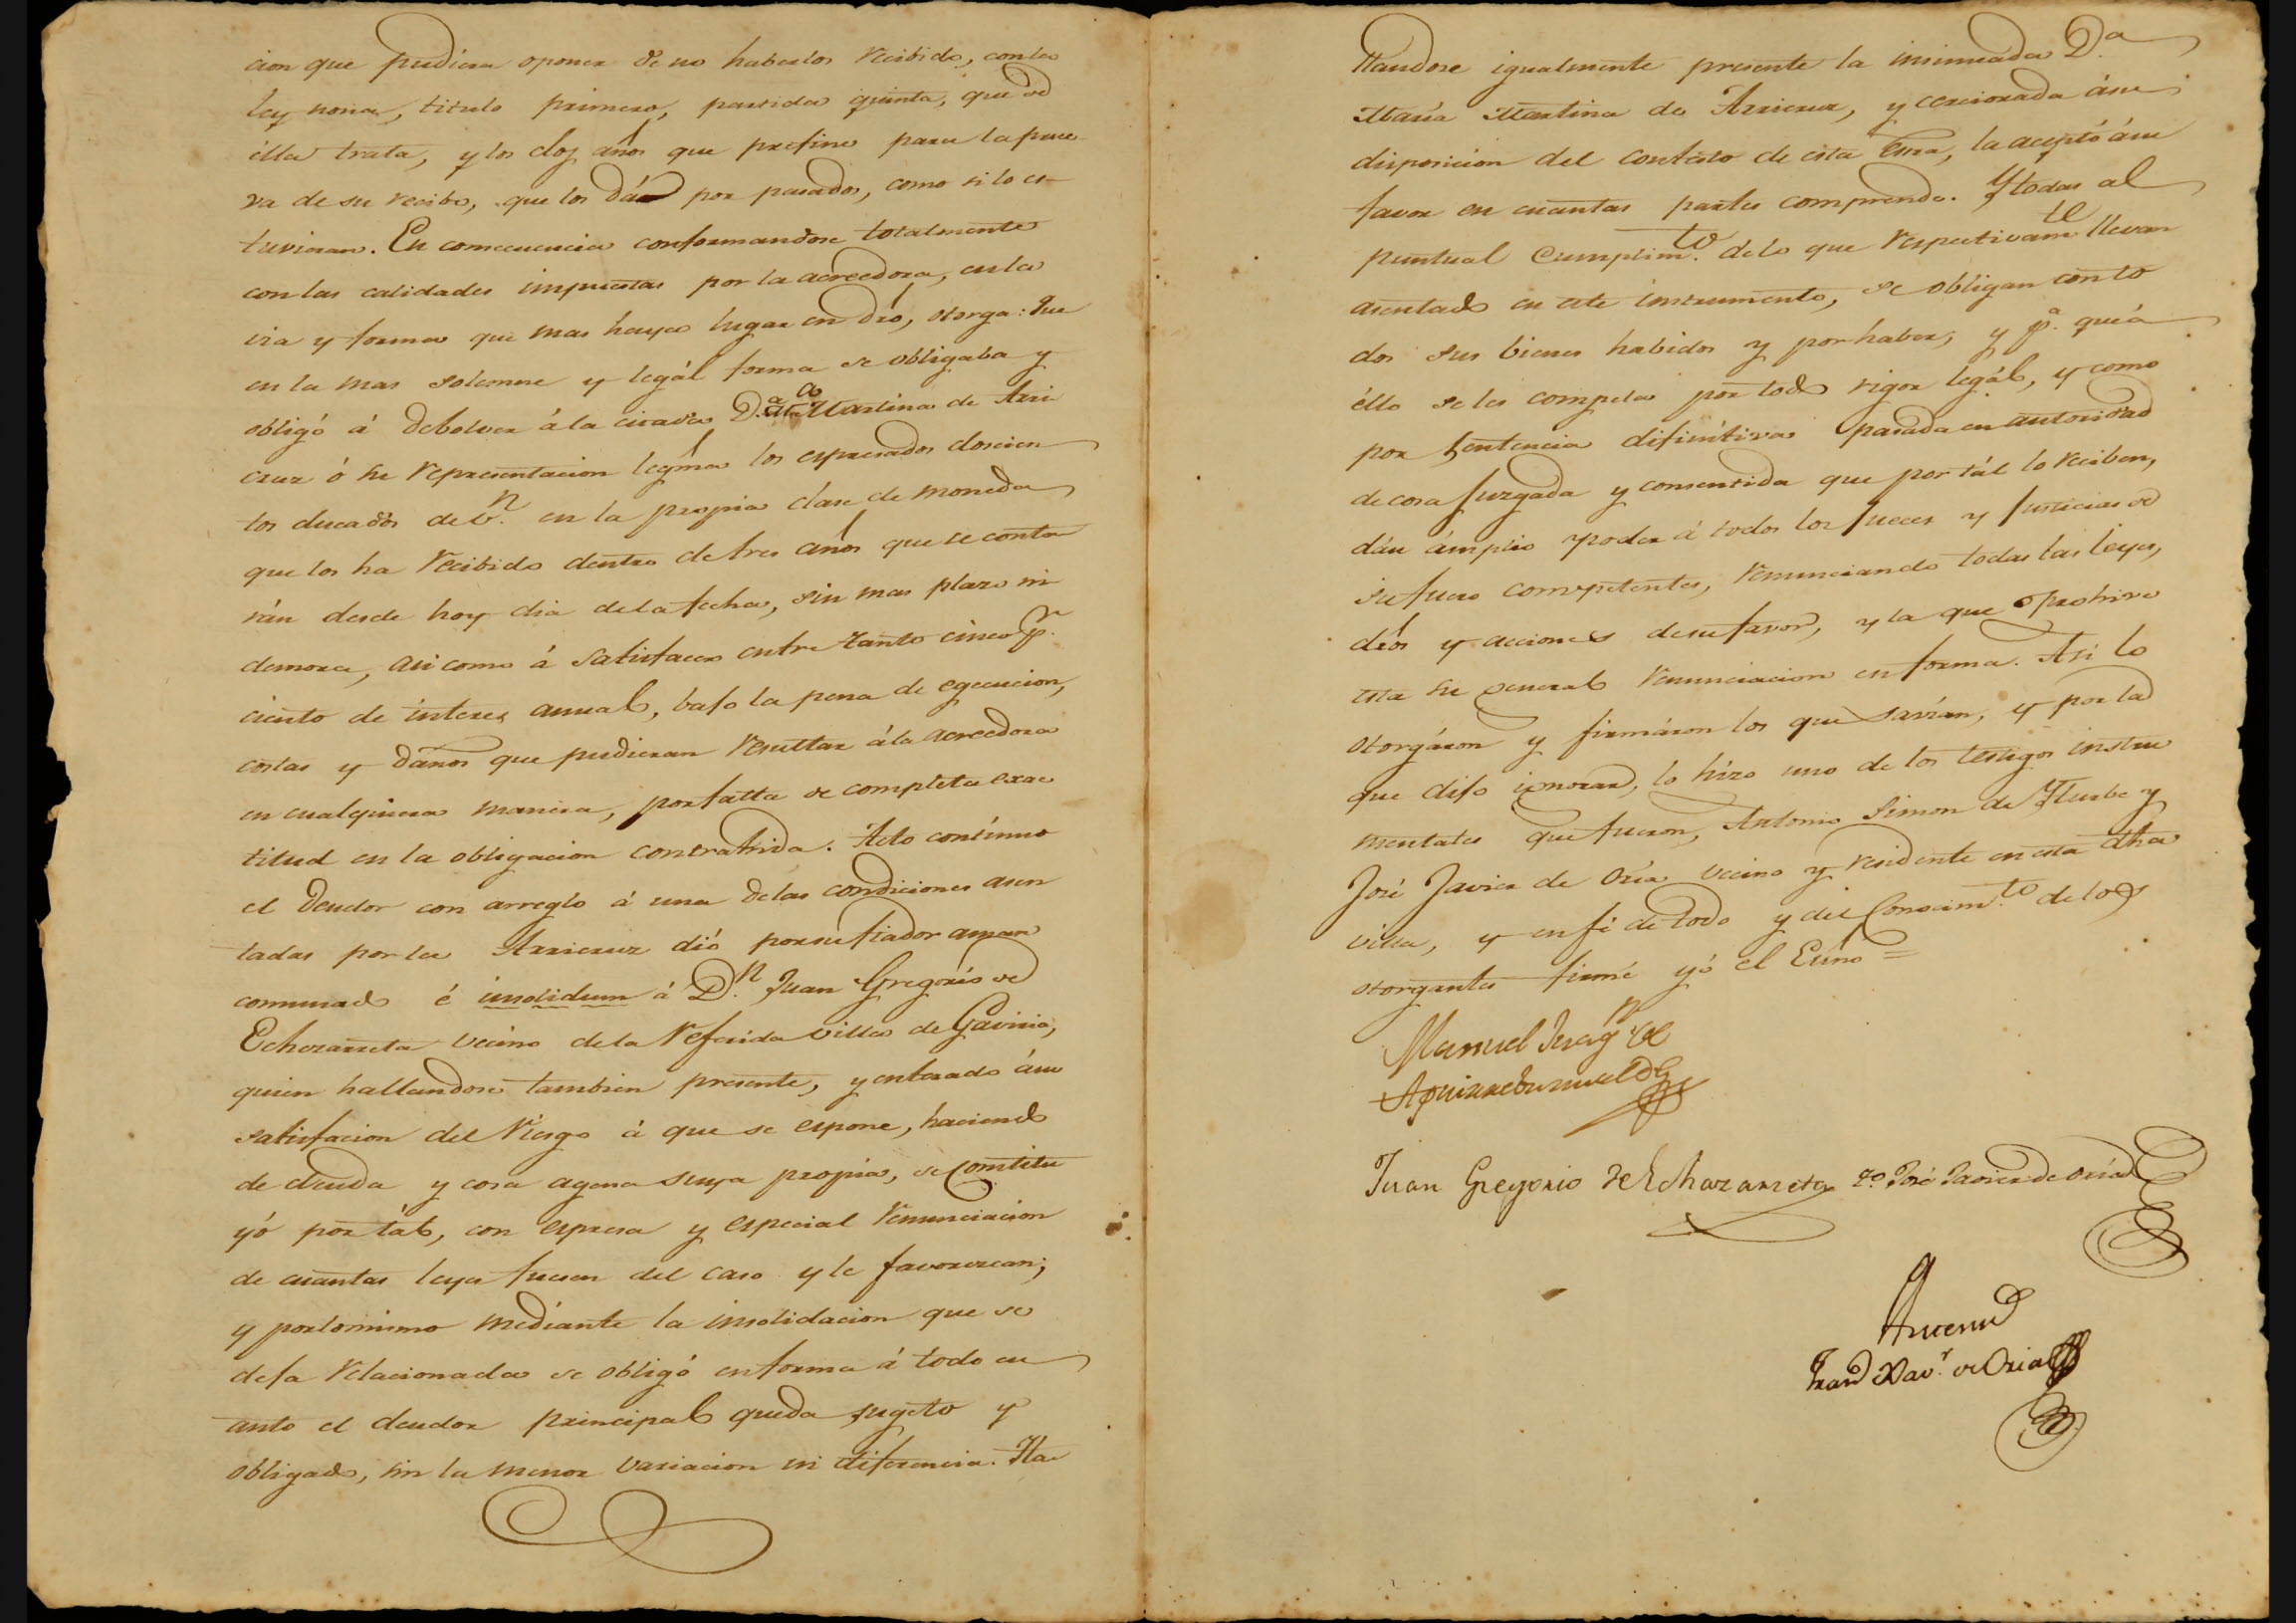 cion que pudiera oponer de no haberlos recibido, con la
ley nona, titulo primero, partida quinta, que de
ella trata, y los dos años que prefine para la prue
va de su recibo, que los dá por pasados, como si lo es-
tuvieran. En consecuencia conformandose totalmente
con las calidades impuestas por la acreedora, en la
via y forma que mas haya lugar en dro, otorga: Que
en la mas solemne y legál forma se obligaba y
obligó á debolver á la citada D.ª M.ª Martina de Arri
cruz ó su representacion legma los espresados doscien
tos ducados de v.n en la propia clase de moneda
que los ha recibido dentro de tres años que se conta
rán desde hoy dia de la fecha, sin mas plazo ni
demora, asi como á satisfacer entre tanto cinco p.r
ciento de interes anual, bajo la pena de egecucion,
costas y daños que pudieran resultar á la acreedora
en cualquiera manera, por falta de completa exac
titud en la obligacion contrahida. Acto contínuo
el deudor con arreglo á una de las condiciones asen
tadas por la Arricruz dió por su fiador aman
comunado é insolidum á D.n Juan Gregorio de
Echezarreta vecino de la referida villa de Gaviria,
quien hallandose tambien presente, y enterado á su
satisfacion del riesgo á que se espone, haciendo
de deuda y cosa agena suya propia, se constitu
yó por tál, con espresa y especial renunciacion
de cuantas leyes fuesen del caso y le favorezcan;
y por lo mismo mediante la insolidacion que se
deja relacionada se obligó en forma á todo cu
anto el deudor principal queda sugeto y
obligado, sin la menor variacion ni diferencia. Ha
llandose igualmente presente la insinuada D.a
María Martina de Arricruz, y cerciorada á su
disposicion del contesto de esta Essra, la aceptó á su
favor en cuantas partes comprende. Y todas al
puntual cumplim.to de lo que respectivam.te llevan
asentado en este instrumento, se obligan con to
dos sus bienes habidos y por haber, y p.a que á
éllo se les compela por todo rigor legál, y como
por sentencia difinítiva pasada en autoridad
de cosa juzgada y consentida que por tál lo reciben,
dán ámplio poder á todos los Jueces y Justicias de
su fuero competentes, renunciando todas las leyes,
dros y acciones de su favor, y la que prohive
esta su general renunciacion en forma. Asi lo
otorgáron y firmáron los que savian, y por la
que dijo ignorar, lo hizo uno de los testigos instru
mentales que fueron, Antonio Simon de Yturbe y
José Javier de Oria vecino y residente en esta dha
villa, y en fé de todo y del conocim.to de los
otorgantes firmé yó el Essno =
Manuel de
Juan Gregorio de Echezarreta t.o José Javier de Oria
Antemi
Fran.co Xav.r de Oria